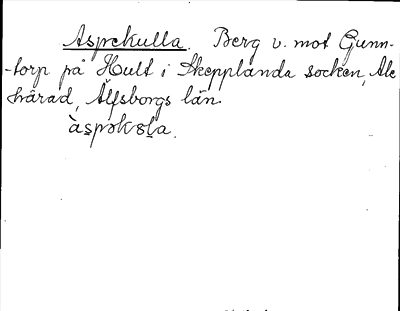 Aspekulla. Berg v. mot Gunn-
-torp på Hult i Skepplanda socken, Ale
härad, Älfsborgs län.